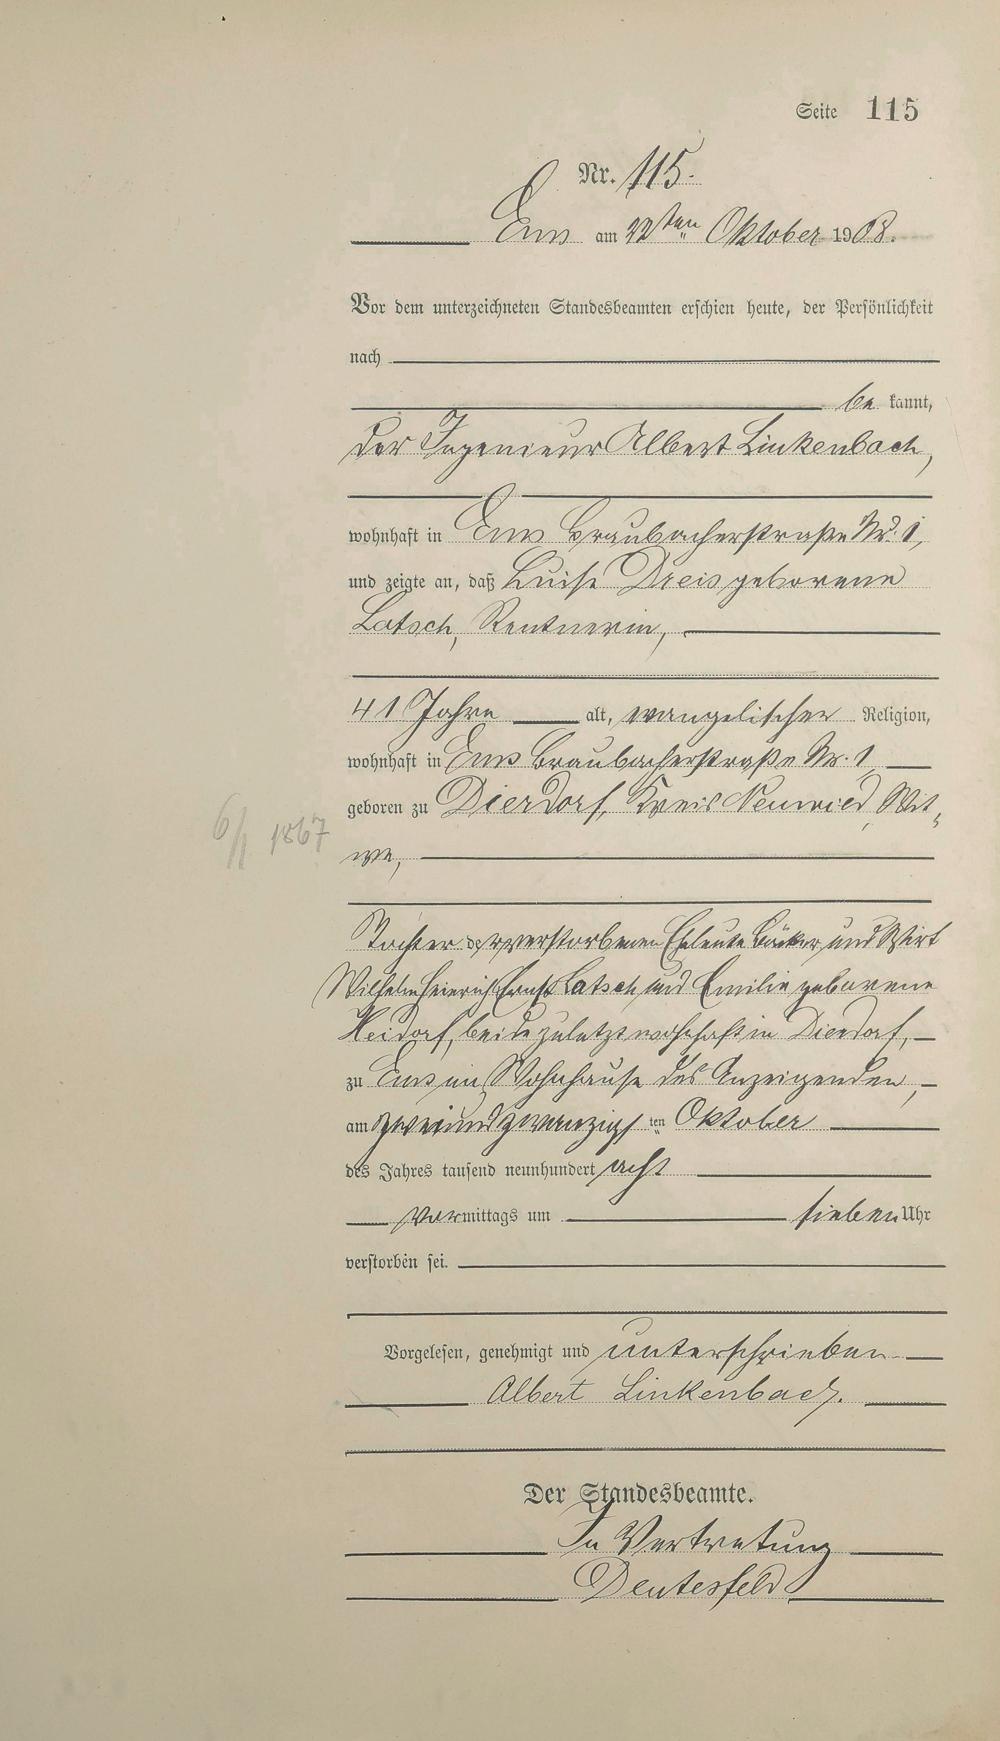 Seite 115
Nr. 115.
Ems am 22ten Oktober 1908.
Vor dem unterzeichneten Standesbeamten erschien heute, der Persönlichkeit
nach
be kannt,
der Ingenieur Albert Linkenbach,
wohnhaft in Ems Braubacherstraße Nr. 1,
und zeigte an, daß Luise Dreis geborene
Latsch, Rentnerin,
41 Jahre alt, evangelischer Religion,
wohnhaft in Ems Braubacherstraße Nr. 1
geboren zu Dierdorf, Kreis Neuwied, Wit-
6/1 1867
we,
Tochter der verstorbenen Eheleute Bäcker und Wirt
Wilhelm Heinrich Ernst Latsch und Emilie geborene
Heidorf, beide zuletzt wohnhaft in Dierdorf,
zu Ems im Wohnhause des Anzeigenden,
am zweiundzwanzigsten Oktober
des Jahres tausend neunhundert acht
Vormittags um sieben Uhr
verstorben sei.
Vorgelesen, genehmigt und unterschrieben
Albert Linkenbach.
Der Standesbeamte.
In Vertretung
Deutesfeld